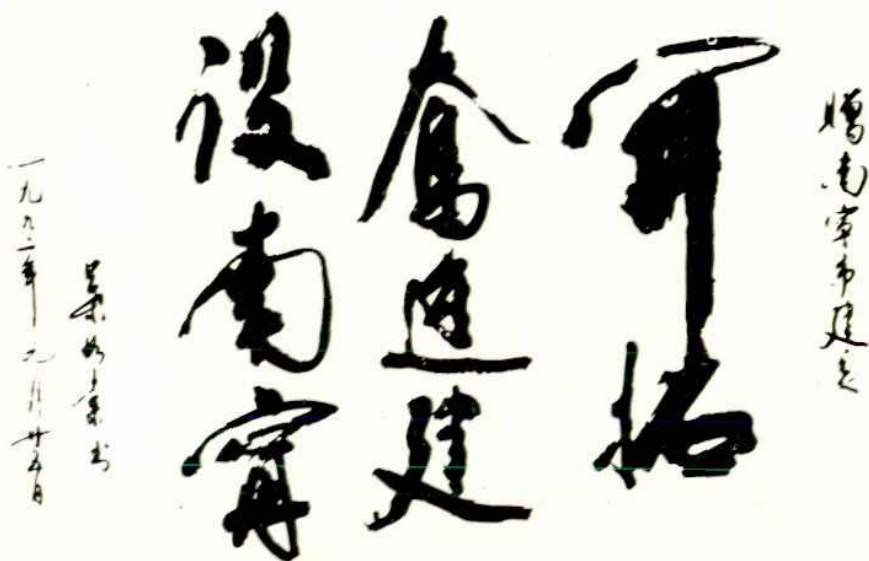 赠南寧市建委
開拓
奮進建
设南寧
书
一九九二年九月廿五日